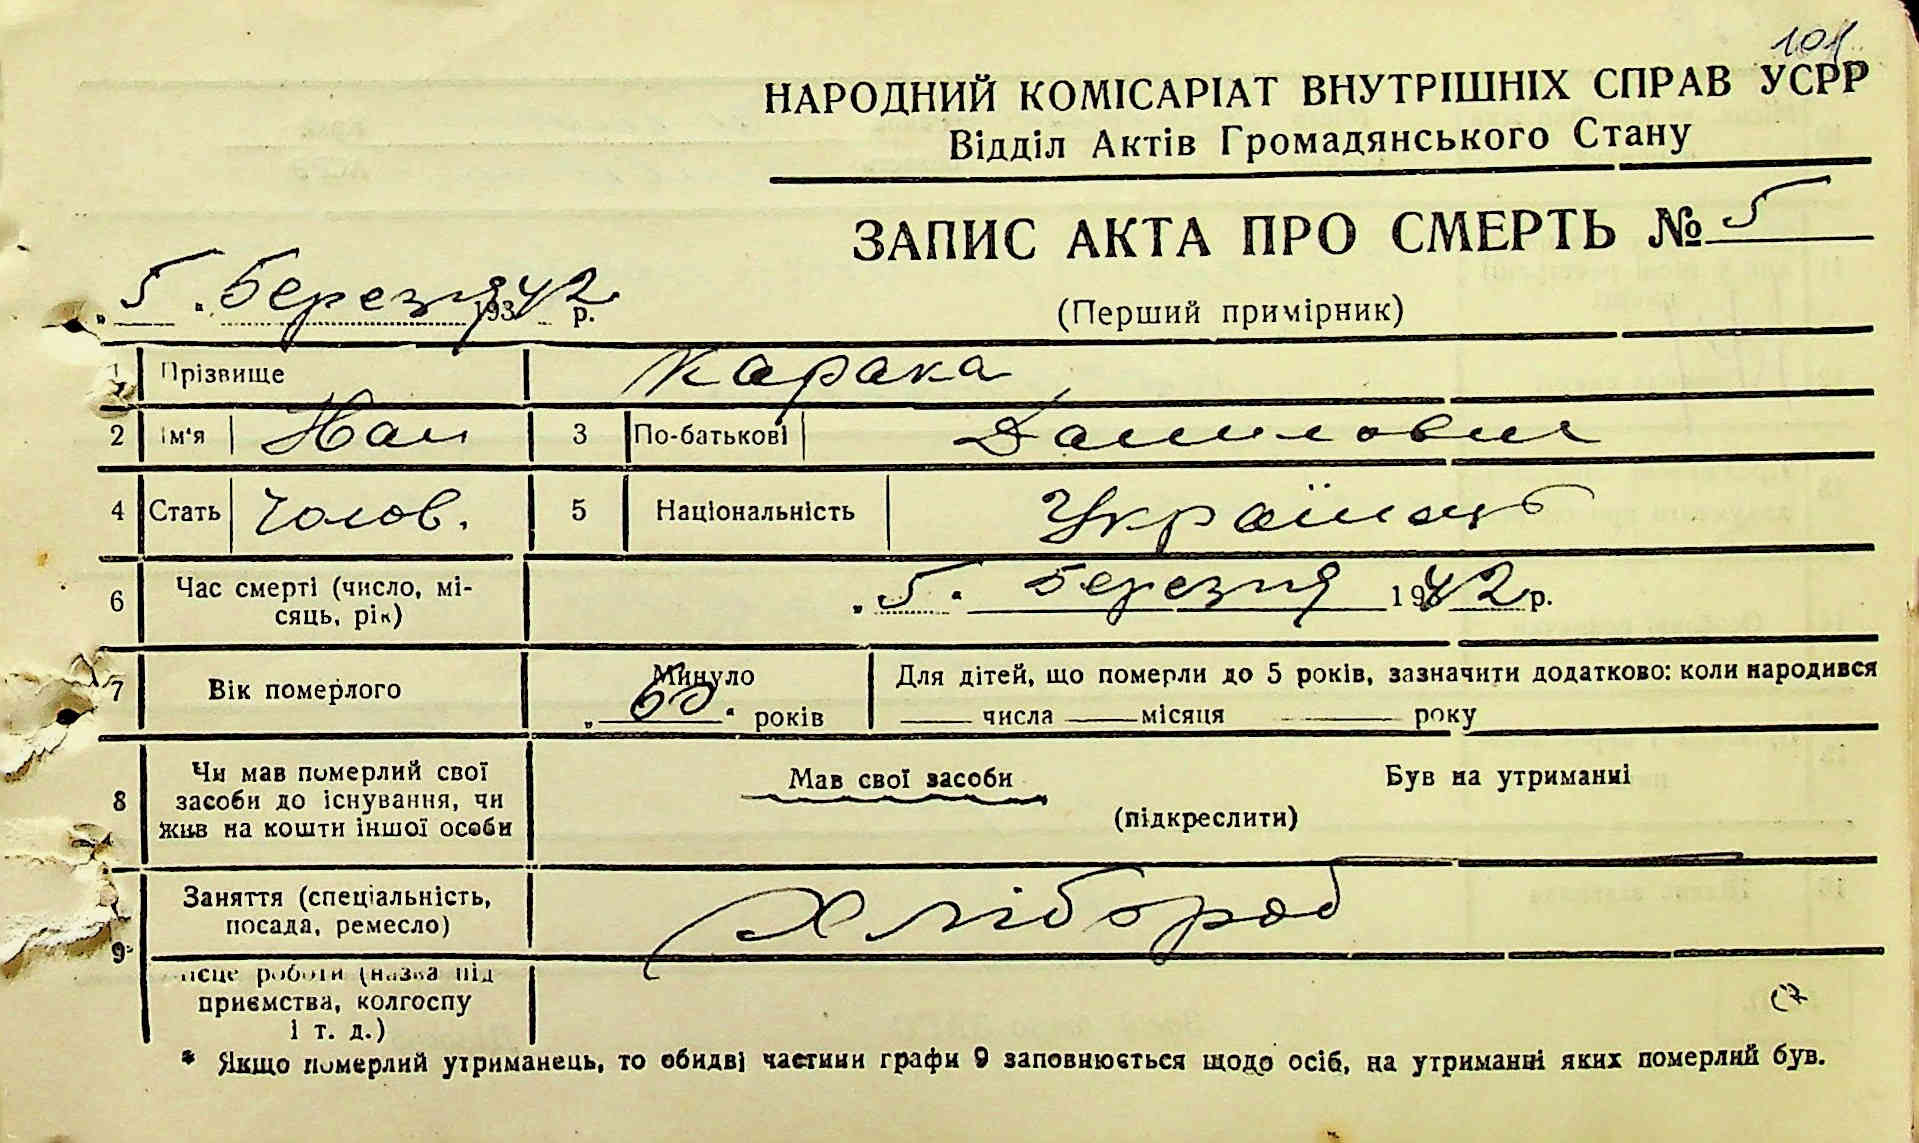 101
НАРОДНИЙ КОМІСАРІАТ ВНУТРІШНІХ СПРАВ УСРР
Відділ Актів Громадянського Стану
ЗАПИС АКТА ПРО СМЕРТЬ № 5
„5“ Березня 1942 р.
(Перший примірник)
1 Прізвище Карака
2 Ім'я 3 По-батькові Данилович
4 Стать Чолов. 5 Національність Українець
6 Час смерті (число, мі-
сяць, рік) „5“ Березня 1942 р.
7 Вік померлого Минуло „60“ років Для дітей, що померли до 5 років, зазначити додатково: коли народився
числа місяця року
8 Чи мав померлий свої
засоби до існування, чи
жив на кошти іншої особи
Мав свої засоби Був на утриманні
(підкреслити)
9 Заняття (спеціальність,
посада, ремесло) Хлібороб
місце роботи (назва під
приємства, колгоспу
і т. д.)
* Якщо померлий утриманець, то обидві частини графи 9 заповнюється щодо осіб, на утриманні яких померлий був.